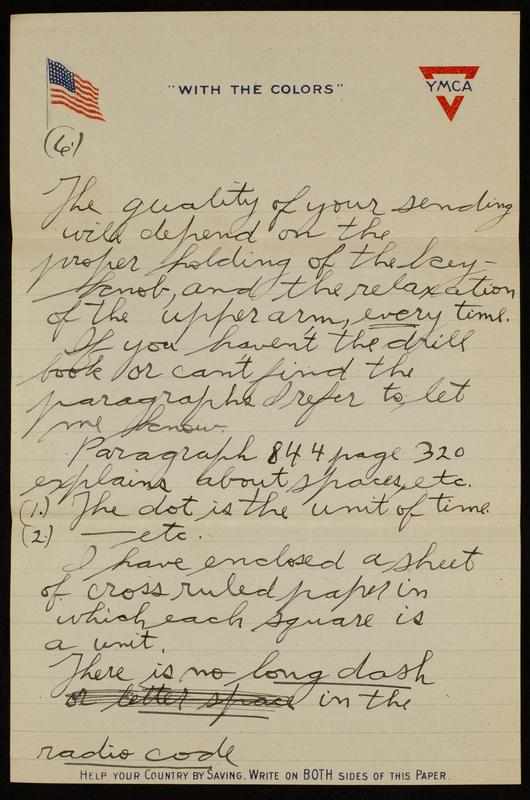 "WITH THE COLORS"
YMCA
(6.)
The quality of your sending
will depend on the
proper holding of the key-
knob, and the relaxation
of the upper arm, every time.
If you haven't the drill
book or cant find the
paragraphs I refer to, let
me know.
Paragraph 844 page 320
explains about spaces, etc.
(1.) The dot is the unit of time.
(2.) — etc.
I have enclosed a sheet
of cross ruled paper in
which each square is
a unit.
There is no long dash
or letter space in the
radio code
HELP YOUR COUNTRY BY SAVING. WRITE ON BOTH SIDES OF THIS PAPER.